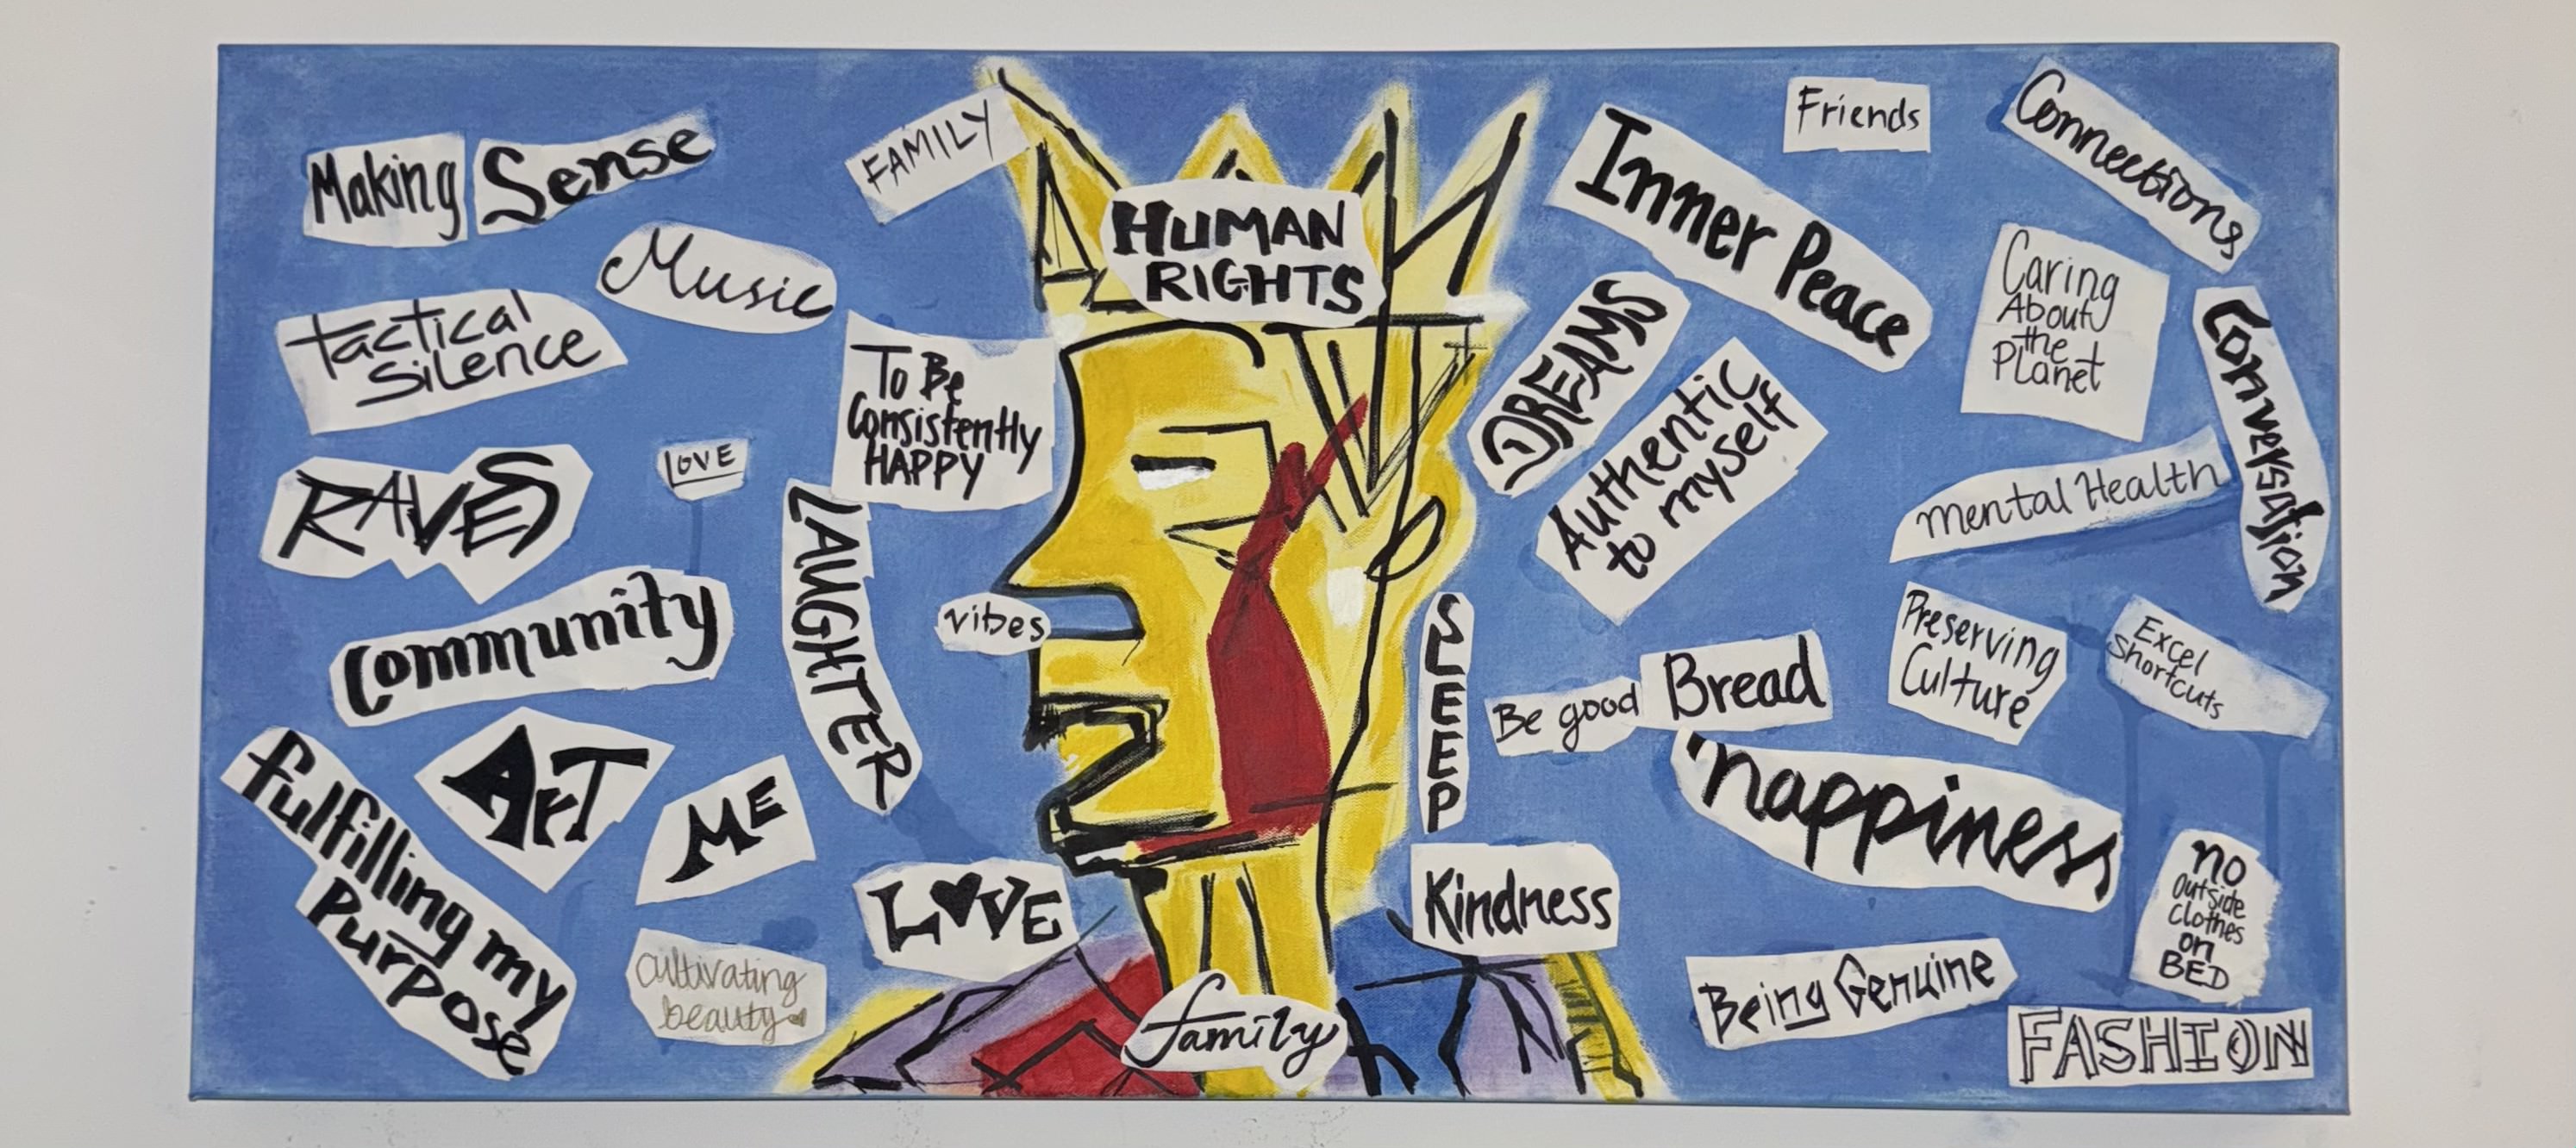 Making Sense
Music
Tactical
Silence
RAVES
LOVE
Community
ART
ME
fulfilling my
Purpose
cultivating
beauty
FAMILY
To Be
Consistently
HAPPY
LAUGHTER
vibes
LOVE
HUMAN
RIGHTS
family
Inner Peace
DREAMS
Authentic
to myself
SLEEP
Be good
Bread
Kindness
Friends
Connections
Caring
About
the
Planet
Conversation
Mental Health
Preserving
Culture
Excel
Shortcuts
happiness
no
outside
clothes
on
BED
Being Genuine
FASHION